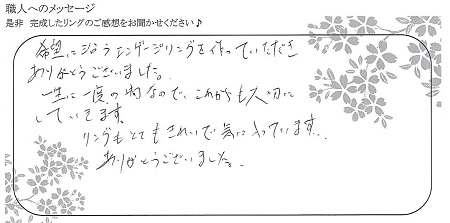 職人へのメッセージ
是非 完成したリングのご感想をお聞かせください♪
希望にそうエンゲージリングを作っていただき
ありがとうございました。
一生に一度の物なので、これからも大切に
していきます。
リングもとてもきれいで気に入っています。
ありがとうございました。